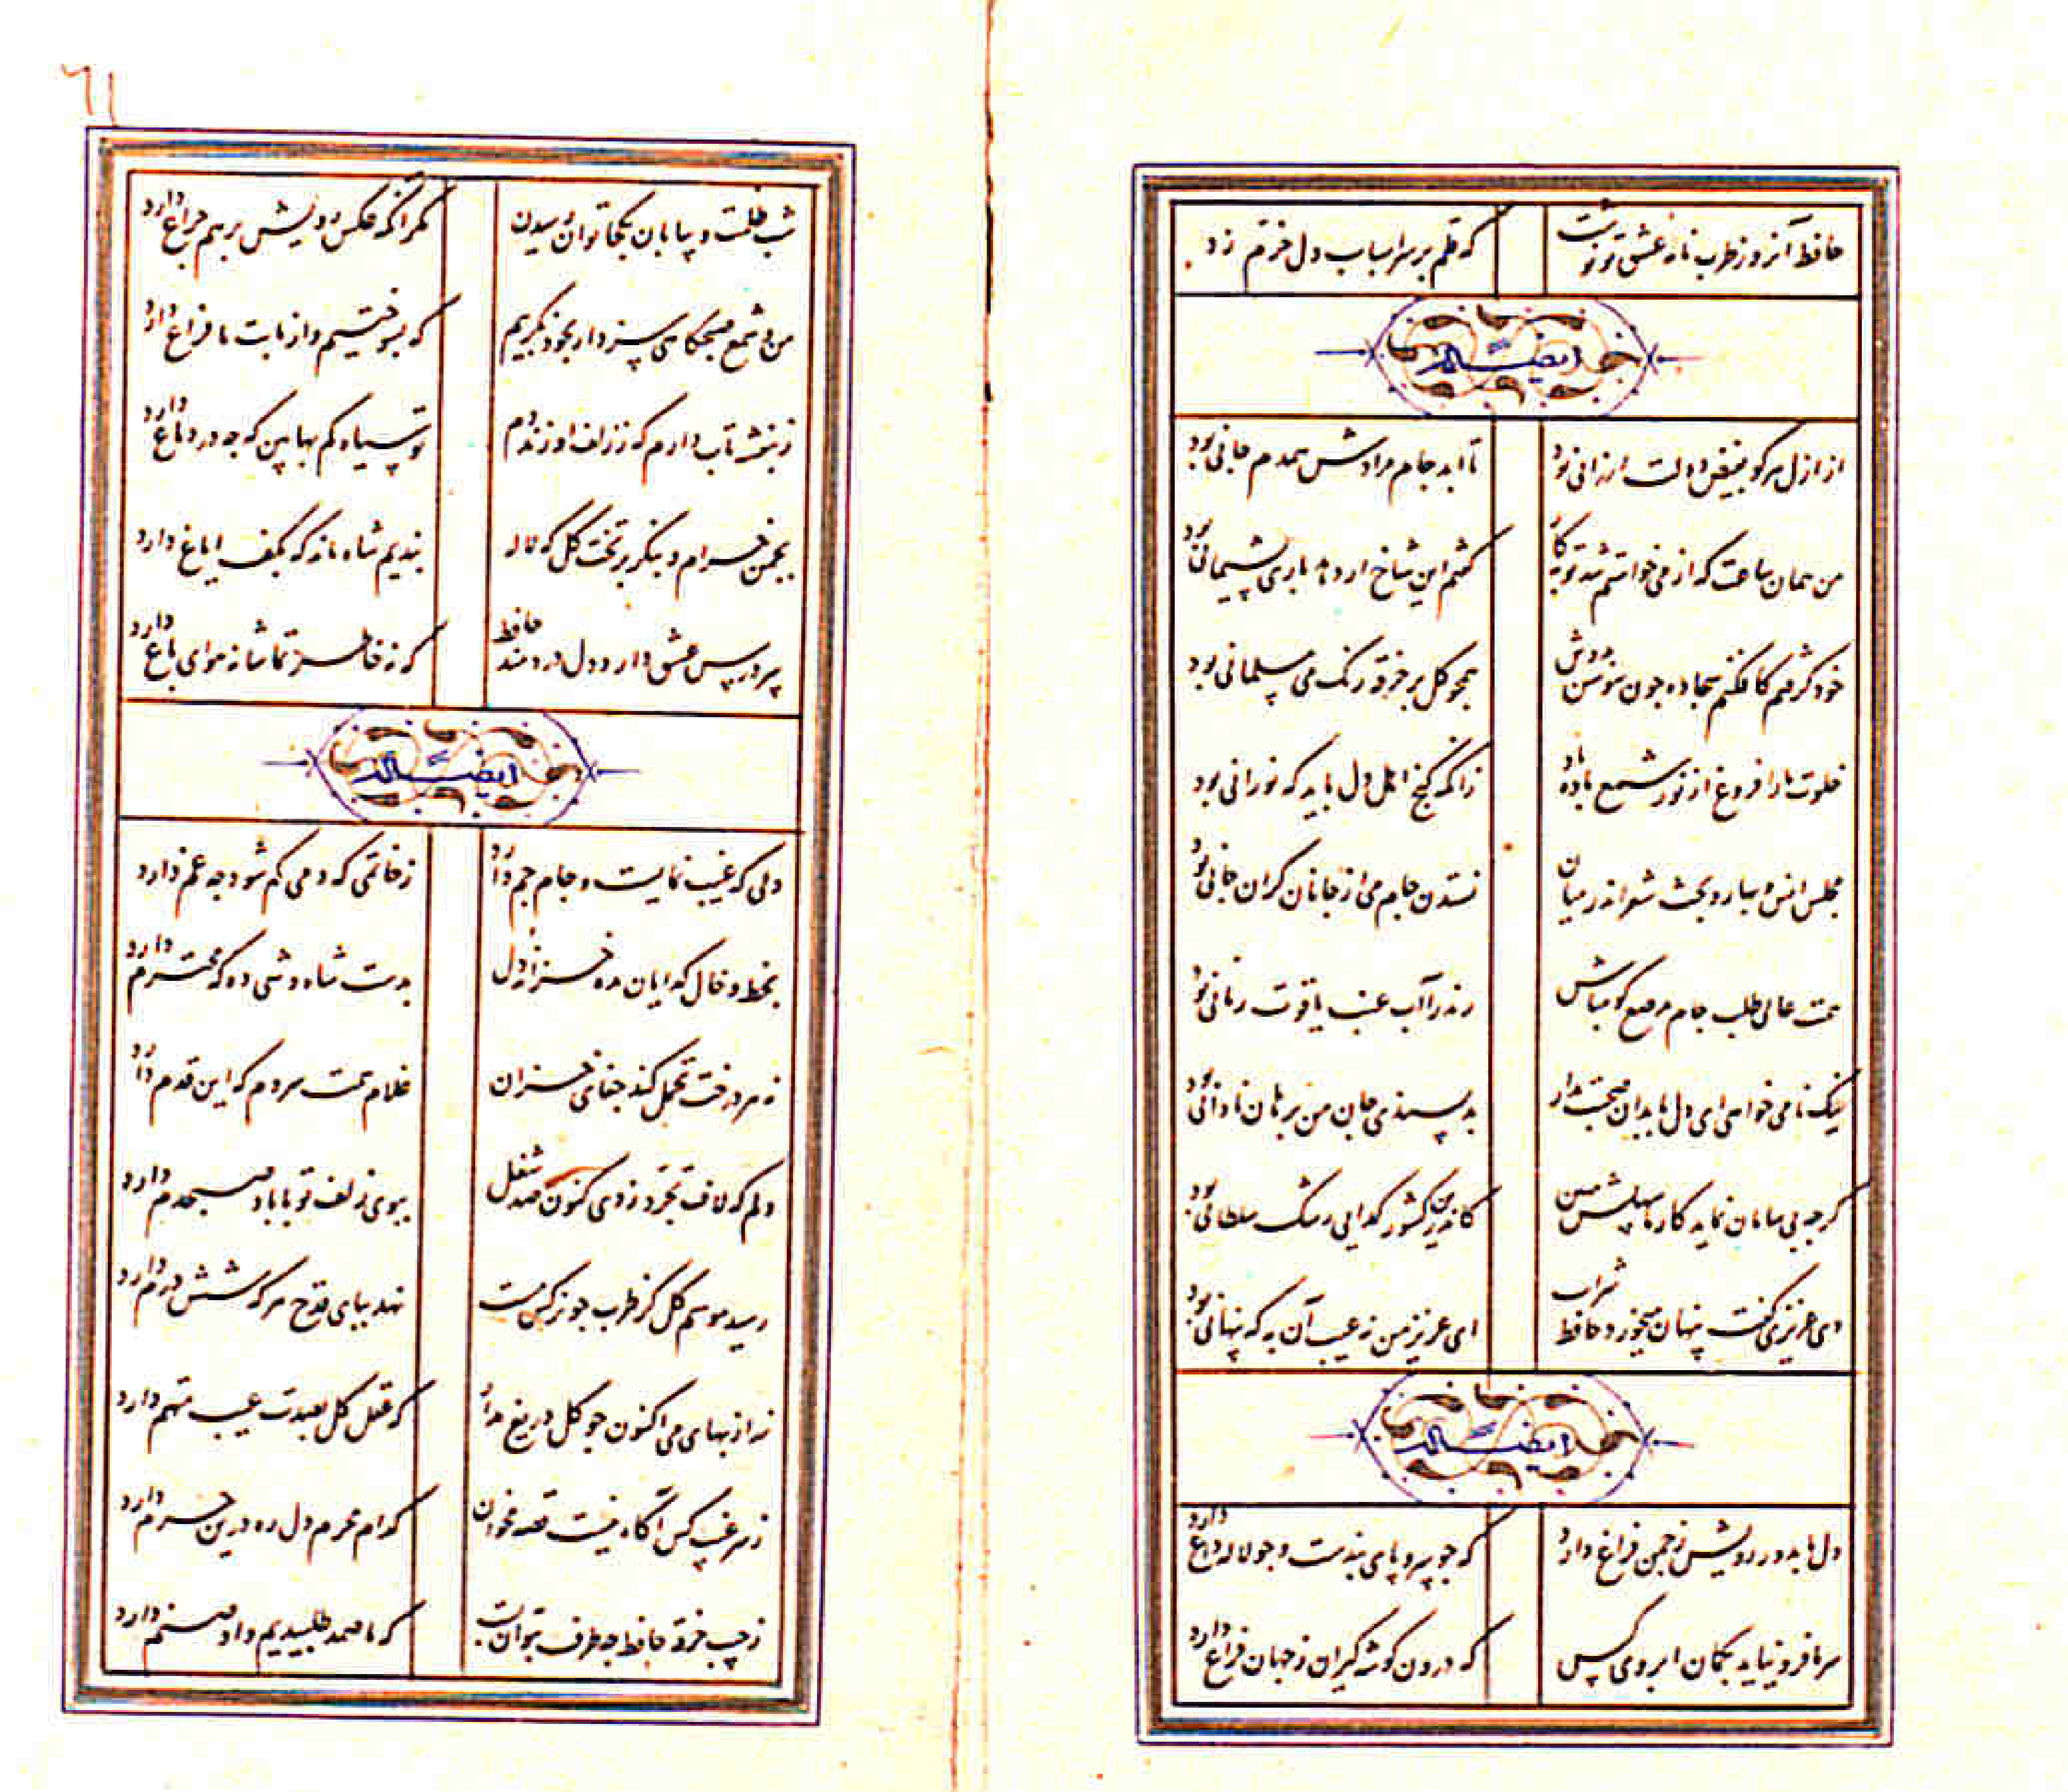 حافظ آنروز طرب نامه عشق تو نوشت که قلم بر سر اسباب دل خرم زد
ایضاً له
از ازل هر کو بفیض دولت ارزانی بود تا ابد جام مرادش همدم جانی بود
من همان ساعت که از می خواستم شد توبه کار گفتم این شاخ ار دهد باری پشیمانی بود
خود گرفتم کافکنم سجاده چون سوسن بدوش همچو گل بر خرقه رنگ می مسلمانی بود
خلوت ما را فروغ از نور شمع باده باد زانکه کنج اهل دل باید که نورانی بود
مجلس انس و بهار و بحث شعر اندر میان نستدن جام می از جانان گران جانی بود
همت عالی طلب جام مرصع گو مباش رند را آب عنب یاقوت رمانی بود
نیک نامی خواهی ای دل با بدان صحبت مدار بد پسندی جان من برهان نادانی بود
گرچه بی سامان نماید کار ما سهلش مبین کاندرین کشور گدایی رشک سلطانی بود
دی عزیزی گفت پنهان میخورد حافظ شراب ای عزیز من نه عیب آن به که پنهانی بود
ایضاً له
دل ما بدور رویش ز چمن فراغ دارد که چو سرو پای بندست و چو لاله داغ دارد
سر ما فرو نیاید بکمان ابروی کس که درون گوشه گیران ز جهان فراغ دارد
۶۱
شب ظلمت و بیابان بکجا توان رسیدن مگر آنکه عکس رویش برهم چراغ دارد
من و شمع صبحگاهی سزد ار بخود بگرییم که بسوختیم و از ما بت ما فراغ دارد
ز بنفشه تاب دارم که ز زلف او زند دم تو سیاه کم بها بین که چه در دماغ دارد
بچمن خرام و بنگر بر تخت گل که لاله بندیم شاه ماند که بکف ایاغ دارد
سر درس عشق دارد دل دردمند حافظ که نه خاطر تماشا نه هوای باغ دارد
ایضاً له
دلی که غیب نمایست و جام جم دارد ز خاتمی که دمی گم شود چه غم دارد
بخط و خال گدایان مده خزانه دل بدست شاه وشی ده که محترم دارد
نه هر درخت تحمل کند جفای خزان غلام همت سروم که این قدم دارد
دلم که لاف تجرد زدی کنون صد شغل ببوی زلف تو با باد صبحدم دارد
رسید موسم گل کز طرب چو نرگس مست نهد بپای قدح هر که شش درم دارد
زر از بهای می اکنون چو گل دریغ مدار که عقل کل بصدت عیب متهم دارد
ز سر غیب کس آگاه نیست قصه مخوان کدام محرم دل ره درین حرم دارد
ز جیب خرقه حافظ چه طرف بتوان بست که ما صمد طلبیدیم و او صنم دارد